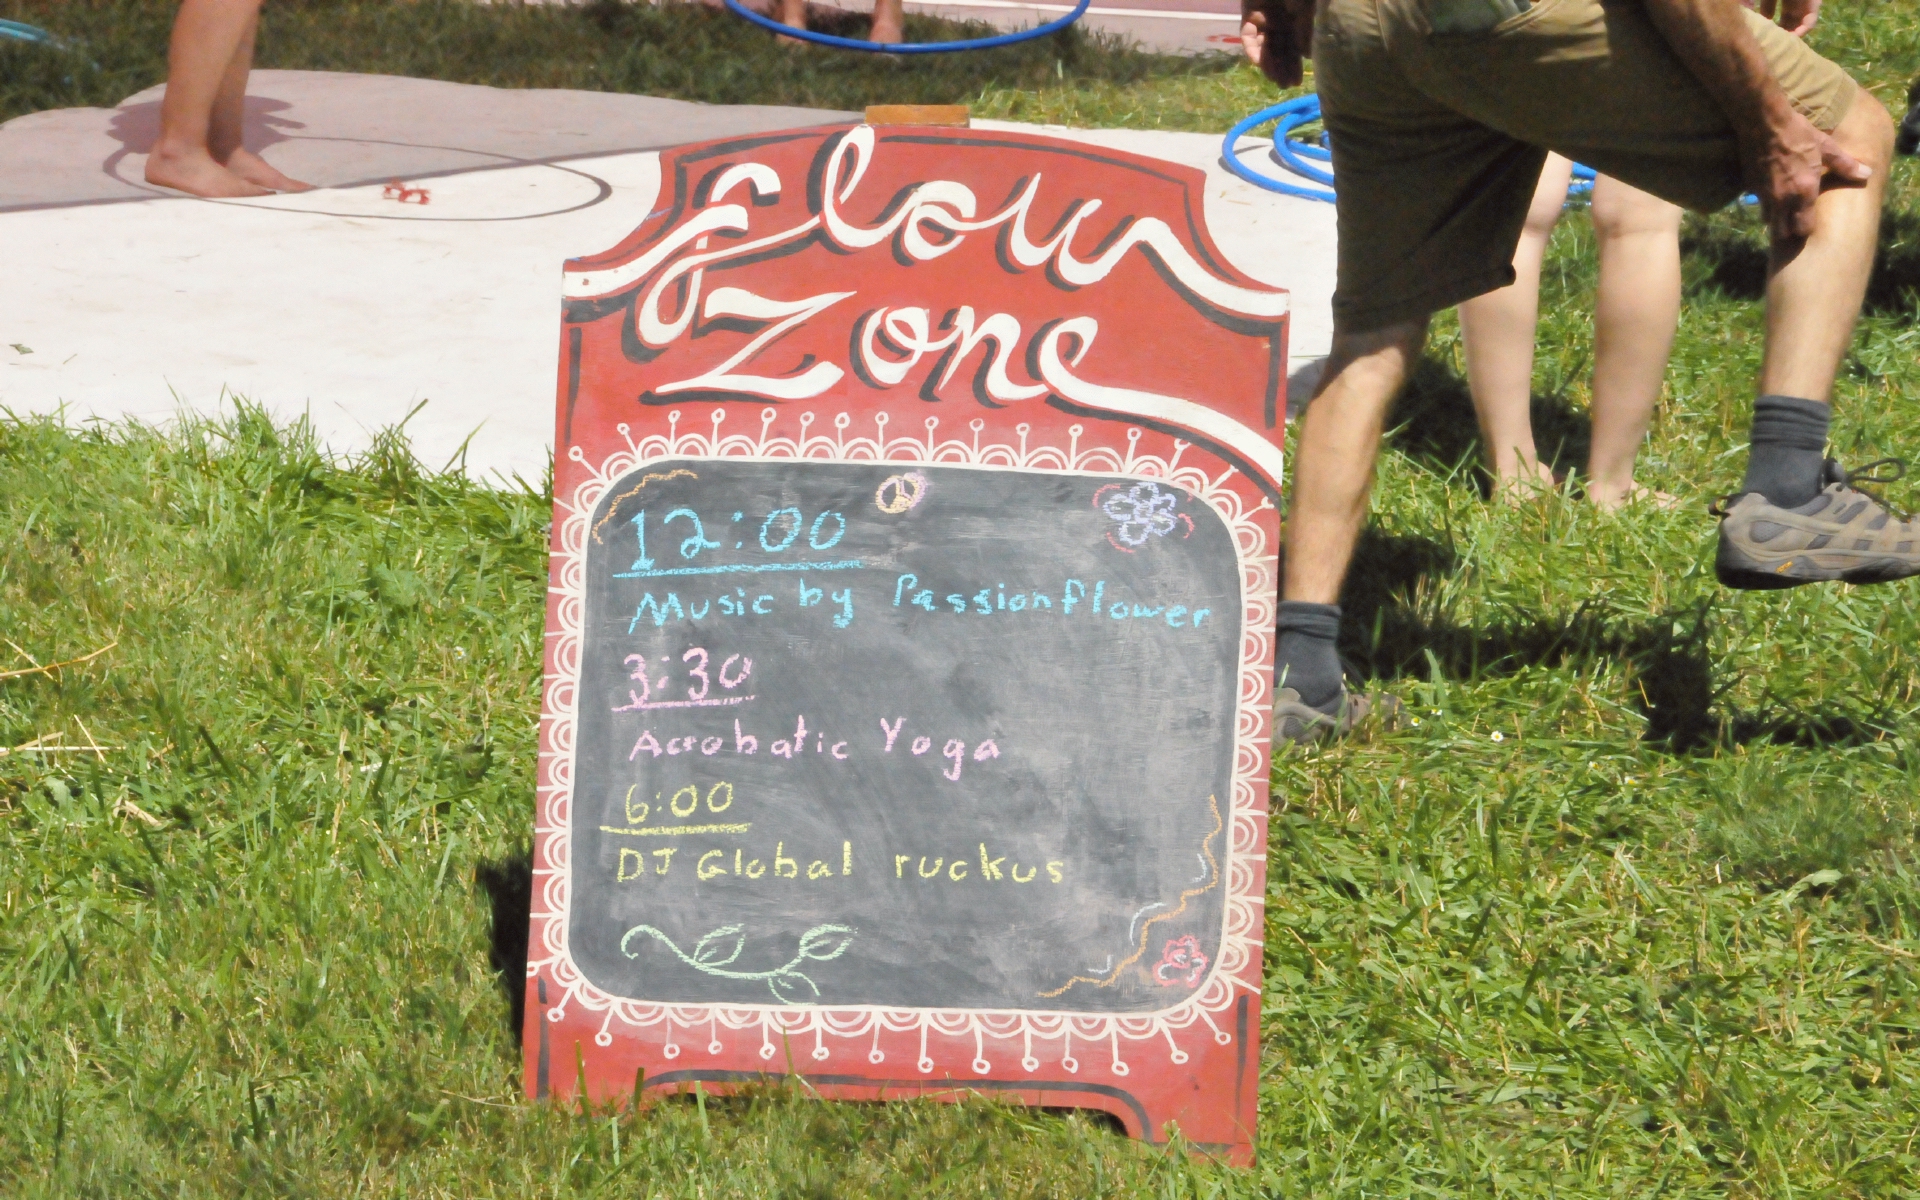 flow
Zone
12:00
Music by Passionflower
3:30
Acrobatic Yoga
6:00
DJ Global ruckus